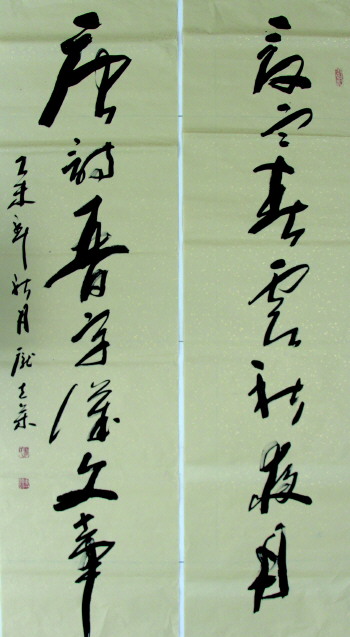 夏雨春雲秋夜月
唐詩晉字漢文章
乙未年秋月